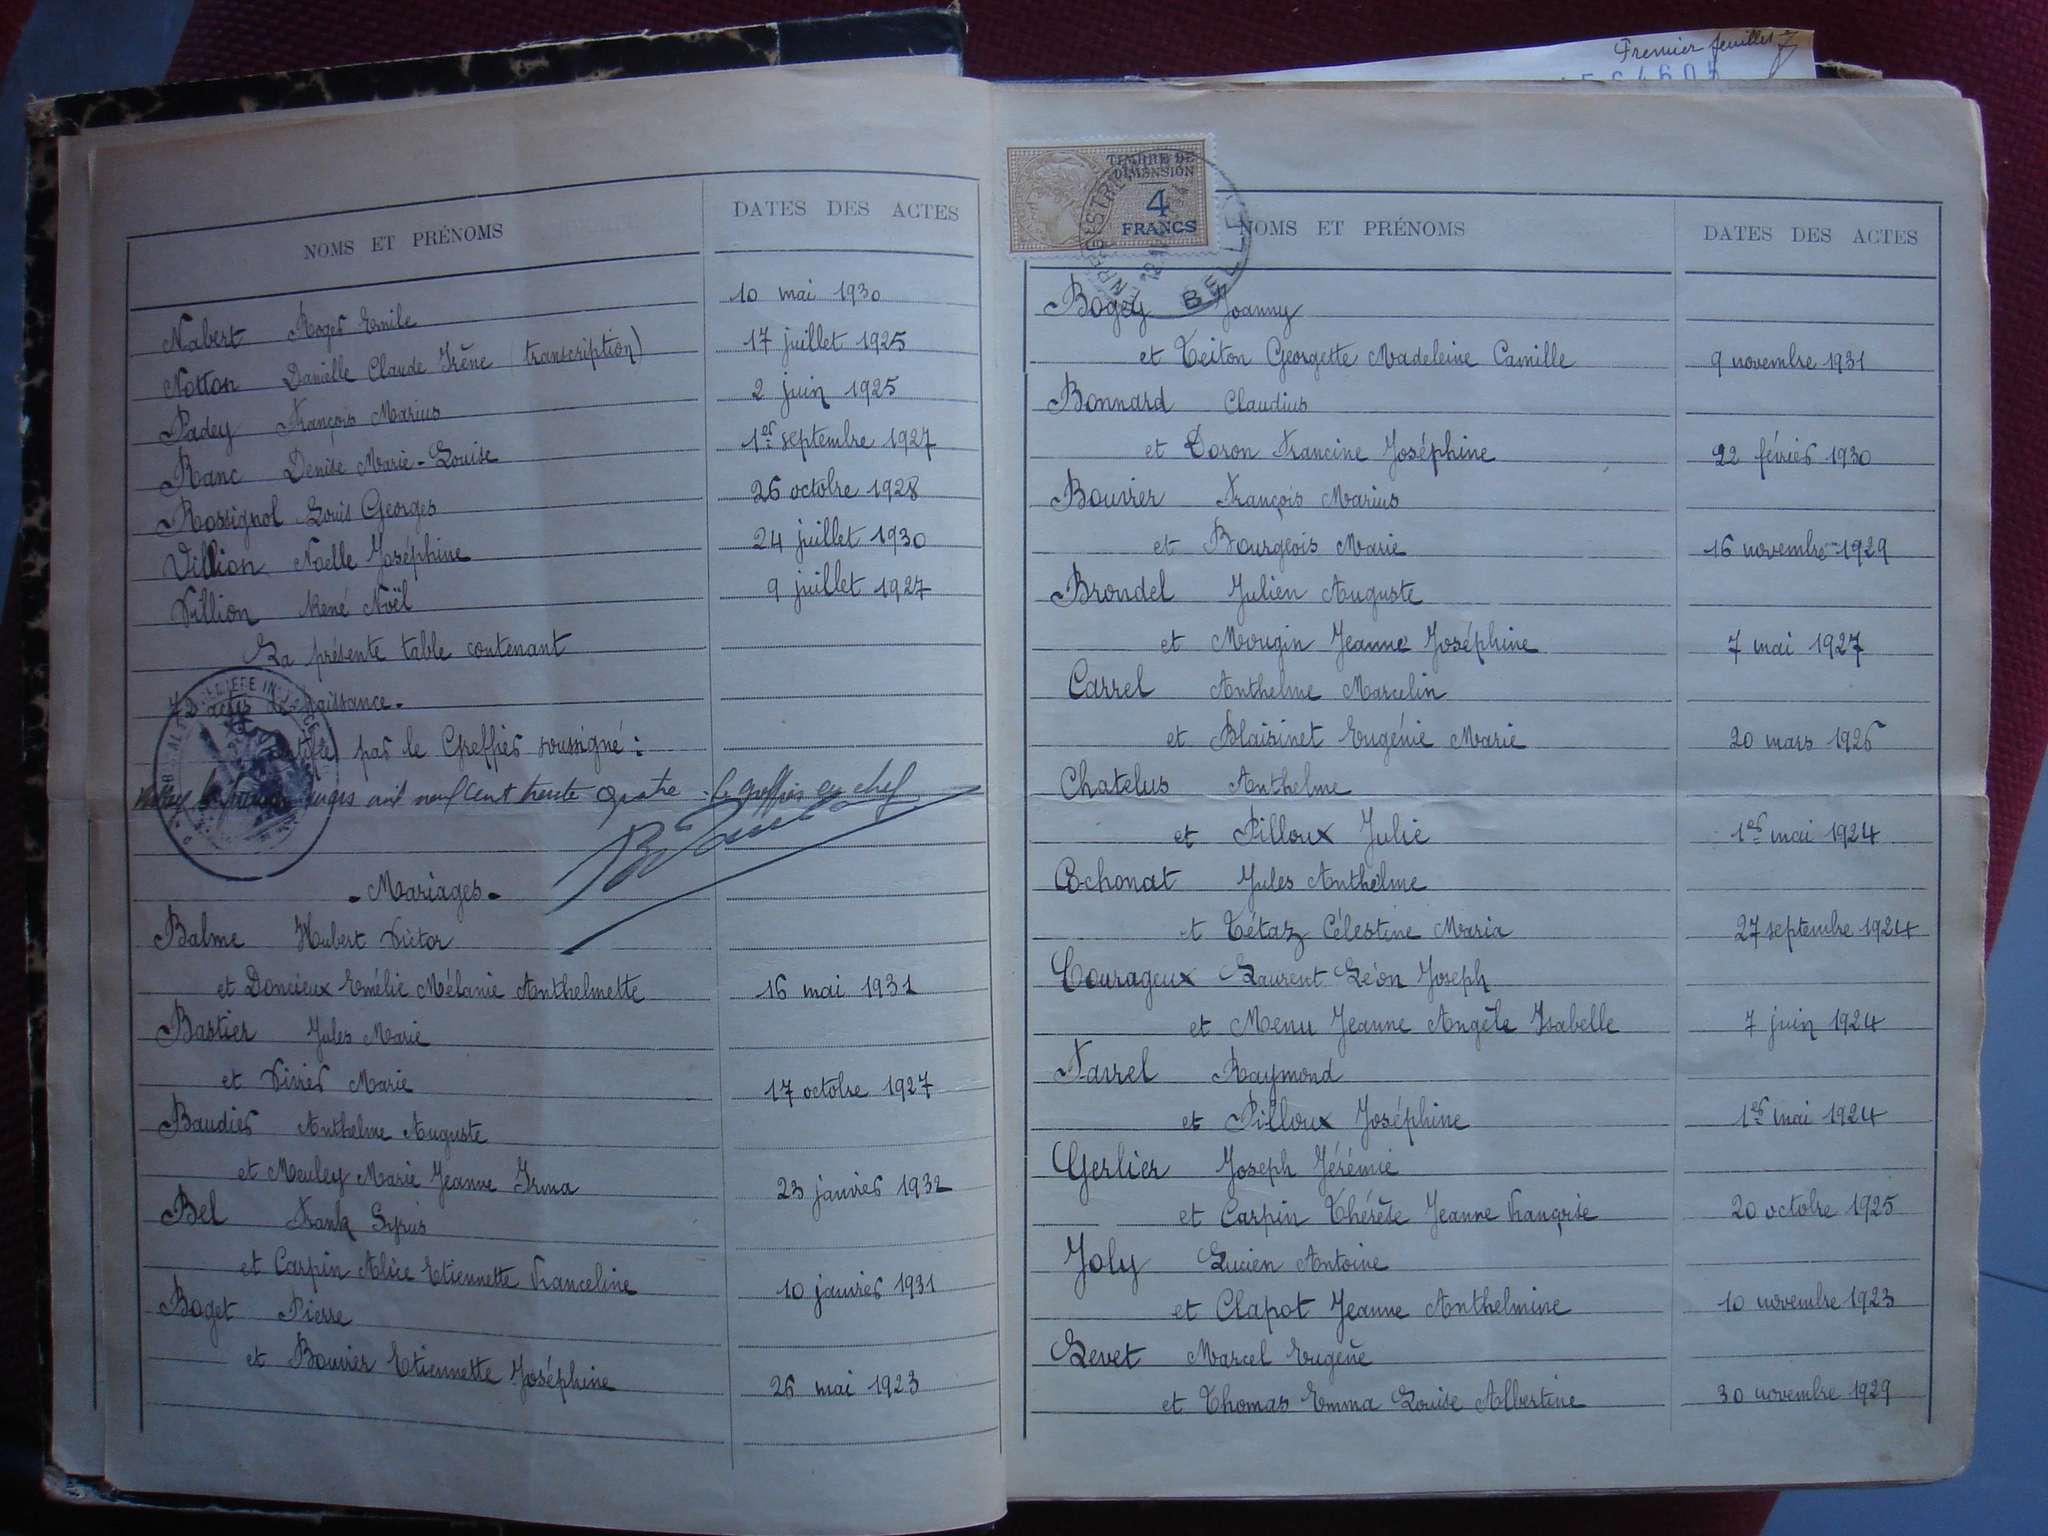 NOMS ET PRÉNOMS DATES DES ACTES
Nabert Roger Emile 10 mai 1930
Notton Danielle Claude Irène (transcription) 17 juillet 1925
Padey François Marius 2 juin 1925
Ranc Denise Marie-Louise 1er septembre 1927
Rossignol Louis Georges 26 octobre 1928
Villion Noelle Joséphine 24 juillet 1930
Villion René Noël 9 juillet 1927
La présente table contenant
actes de naissance.
par le Greffier soussigné :
mars mil neuf cent trente quatre. Le greffier en chef
- Mariages -
Balme Hubert Victor
et Doncieux Emélie Mélanie Anthelmette 16 mai 1931
Bastier Jules Marie
et Virier Marie 17 octobre 1927
Baudier Anthelme Auguste
et Meuley Marie Jeanne Irma 23 janvier 1932
Bel Frank Syrus
et Carpin Alice Etiennette Franceline 10 janvier 1931
Boget Pierre
et Bouvier Etiennette Joséphine 26 mai 1923
Premier feuillet
TIMBRE DE
DIMENSION
4
FRANCS
BELLEY
NOMS ET PRÉNOMS DATES DES ACTES
Bogey Joanny
et Teiton Georgette Madeleine Camille 9 novembre 1931
Bonnard Claudius
et Doron Francine Joséphine 22 février 1930
Bouvier François Marius
et Bourgeois Marie 16 novembre 1929
Brondel Julien Auguste
et Mougin Jeanne Joséphine 7 mai 1927
Carrel Anthelme Marcelin
et Plaisinet Eugénie Marie 20 mars 1926
Chatelus Anthelme
et Pilloux Julie 1er mai 1924
Cochonat Jules Anthelme
et Tétaz Célestine Maria 27 septembre 1924
Courageux Laurent Léon Joseph
et Menu Jeanne Angèle Isabelle 7 juin 1924
Favrel Raymond
et Pilloux Joséphine 1er mai 1924
Gerlier Joseph Jérémie
et Carpin Thérèse Jeanne Françoise 20 octobre 1925
Joly Lucien Antoine
et Clapot Jeanne Anthelmine 10 novembre 1923
Levet Marcel Eugène
et Thomas Emma Louise Albertine 30 novembre 1929